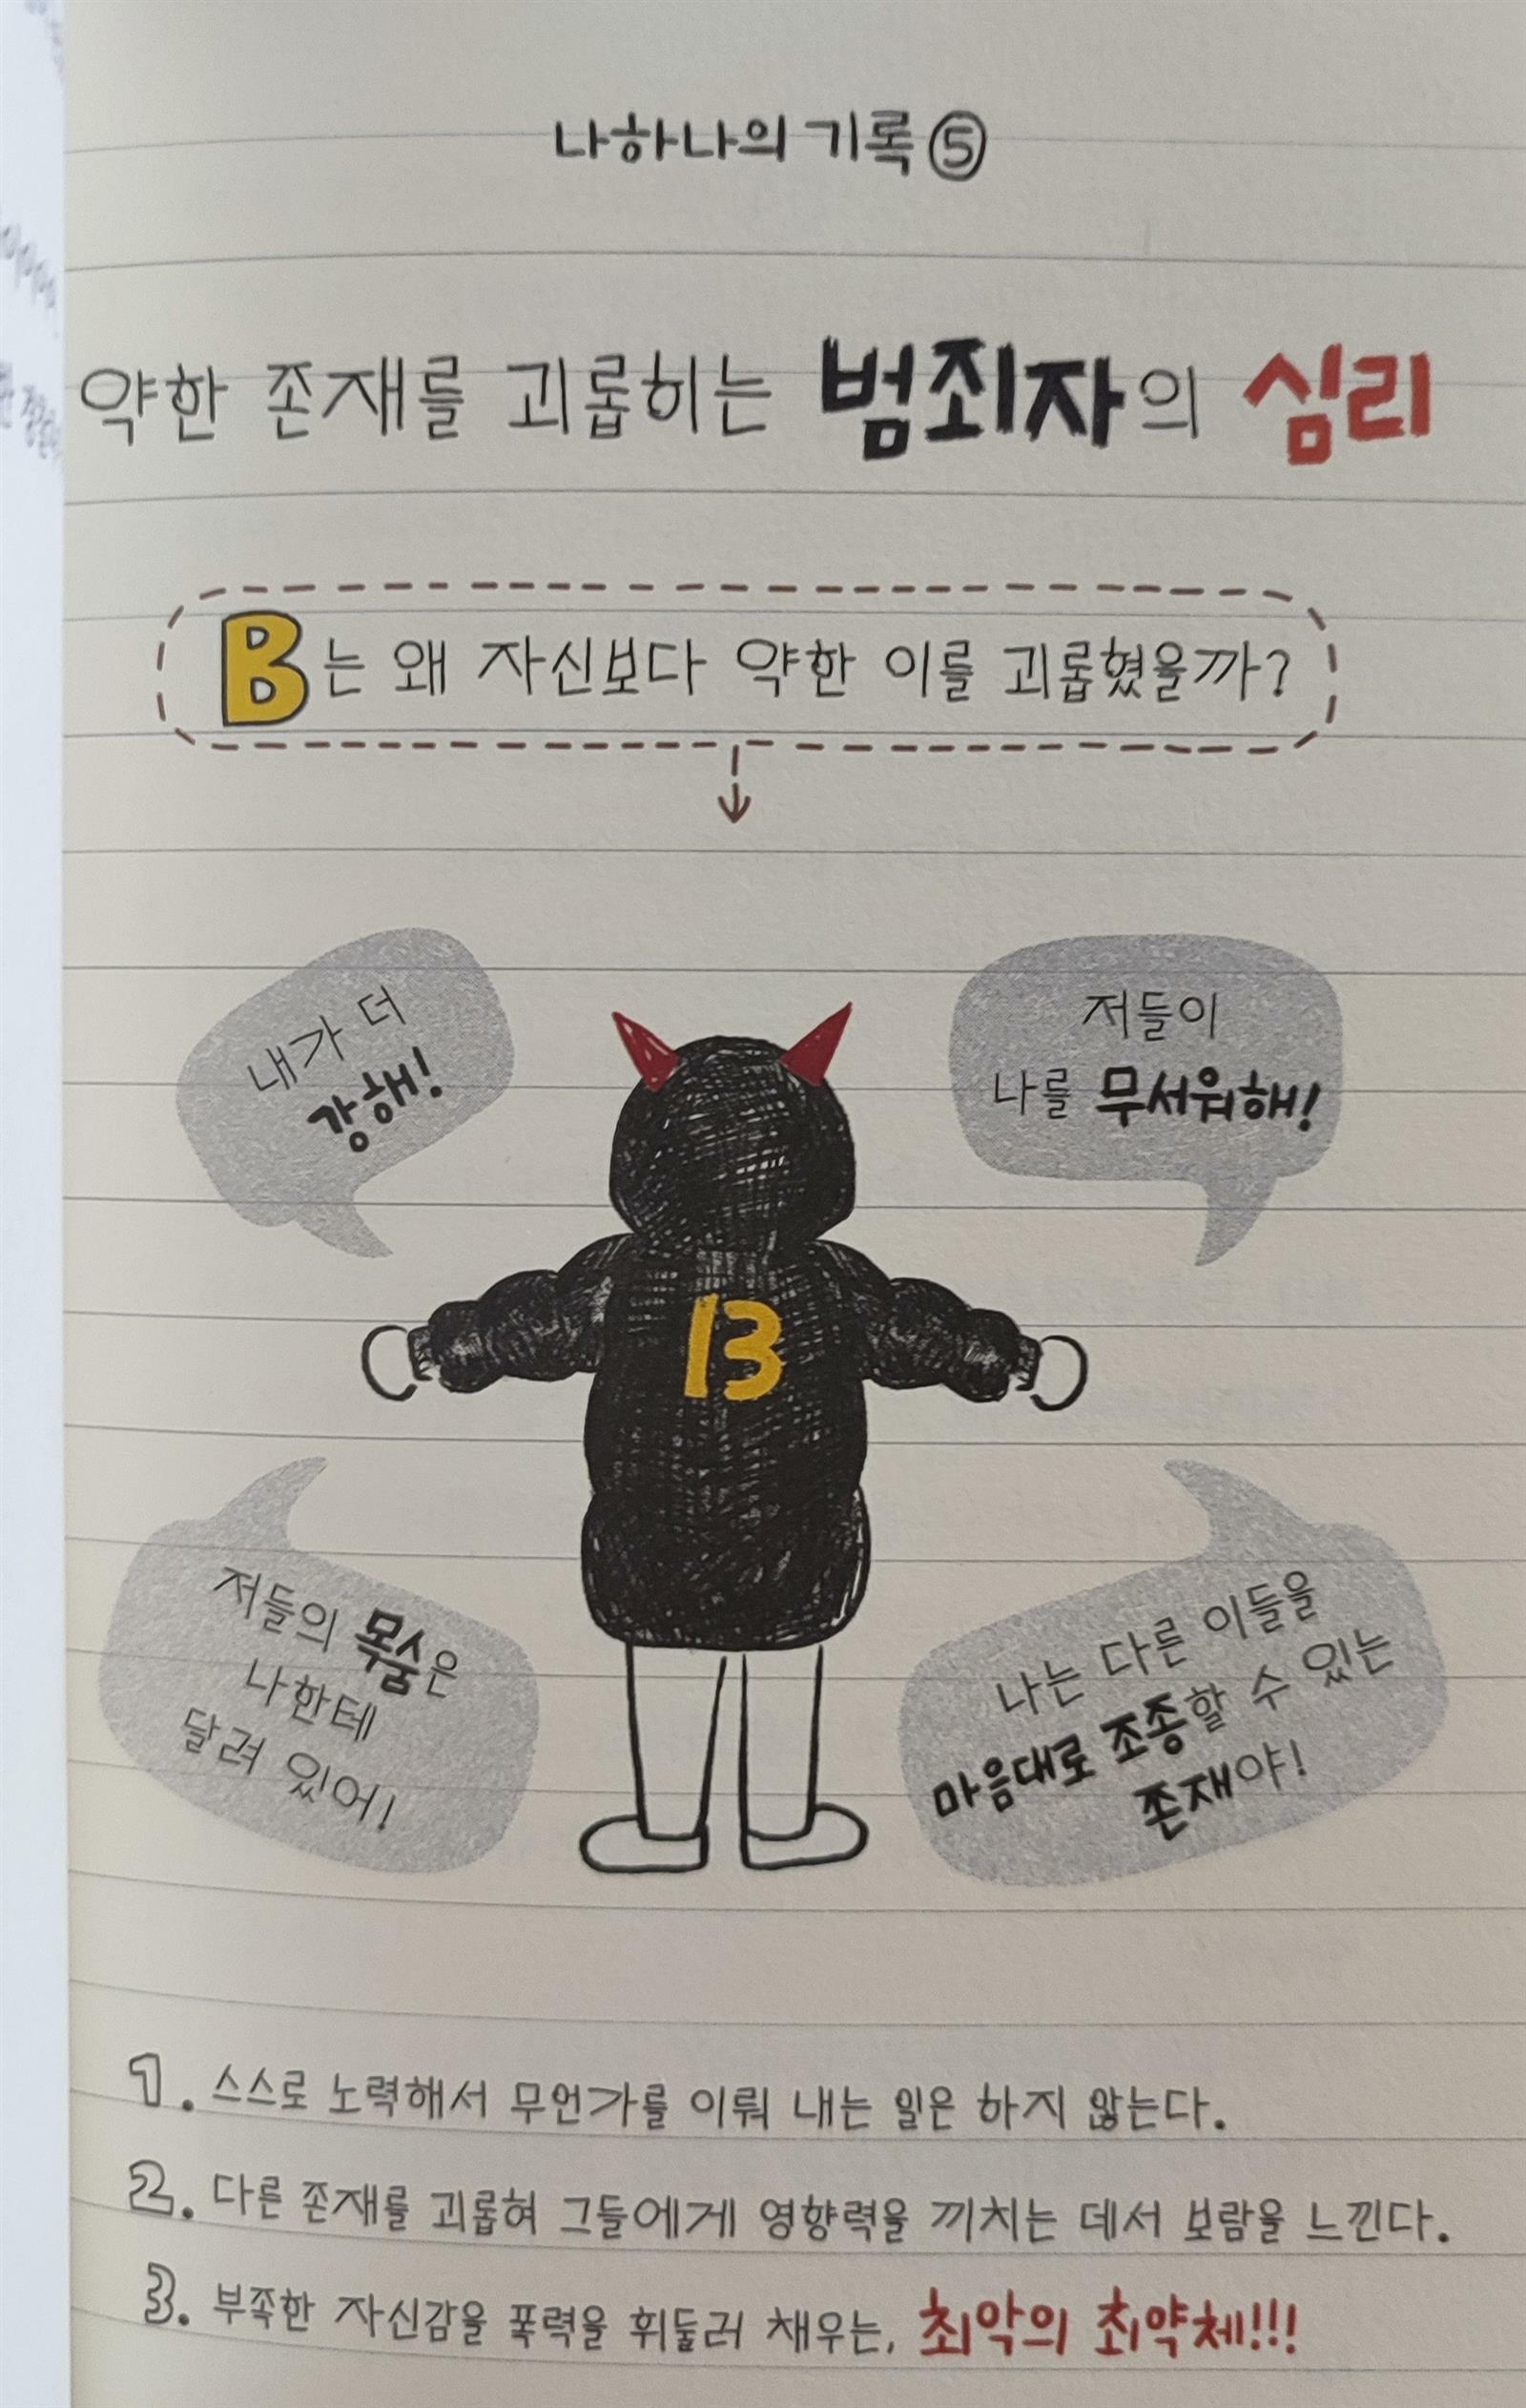 나하나의 기록 ⑤
약한 존재를 괴롭히는 범죄자의 심리
B는 왜 자신보다 약한 이를 괴롭혔을까?
내가 더
강해!
저들이
나를 무서워해!
13
저들의 목숨은
나한테
달려 있어!
나는 다른 이들을
마음대로 조종할 수 있는
존재야!
1. 스스로 노력해서 무언가를 이뤄 내는 일은 하지 않는다.
2. 다른 존재를 괴롭혀 그들에게 영향력을 끼치는 데서 보람을 느낀다.
3. 부족한 자신감을 폭력을 휘둘러 채우는, 최악의 최약체!!!